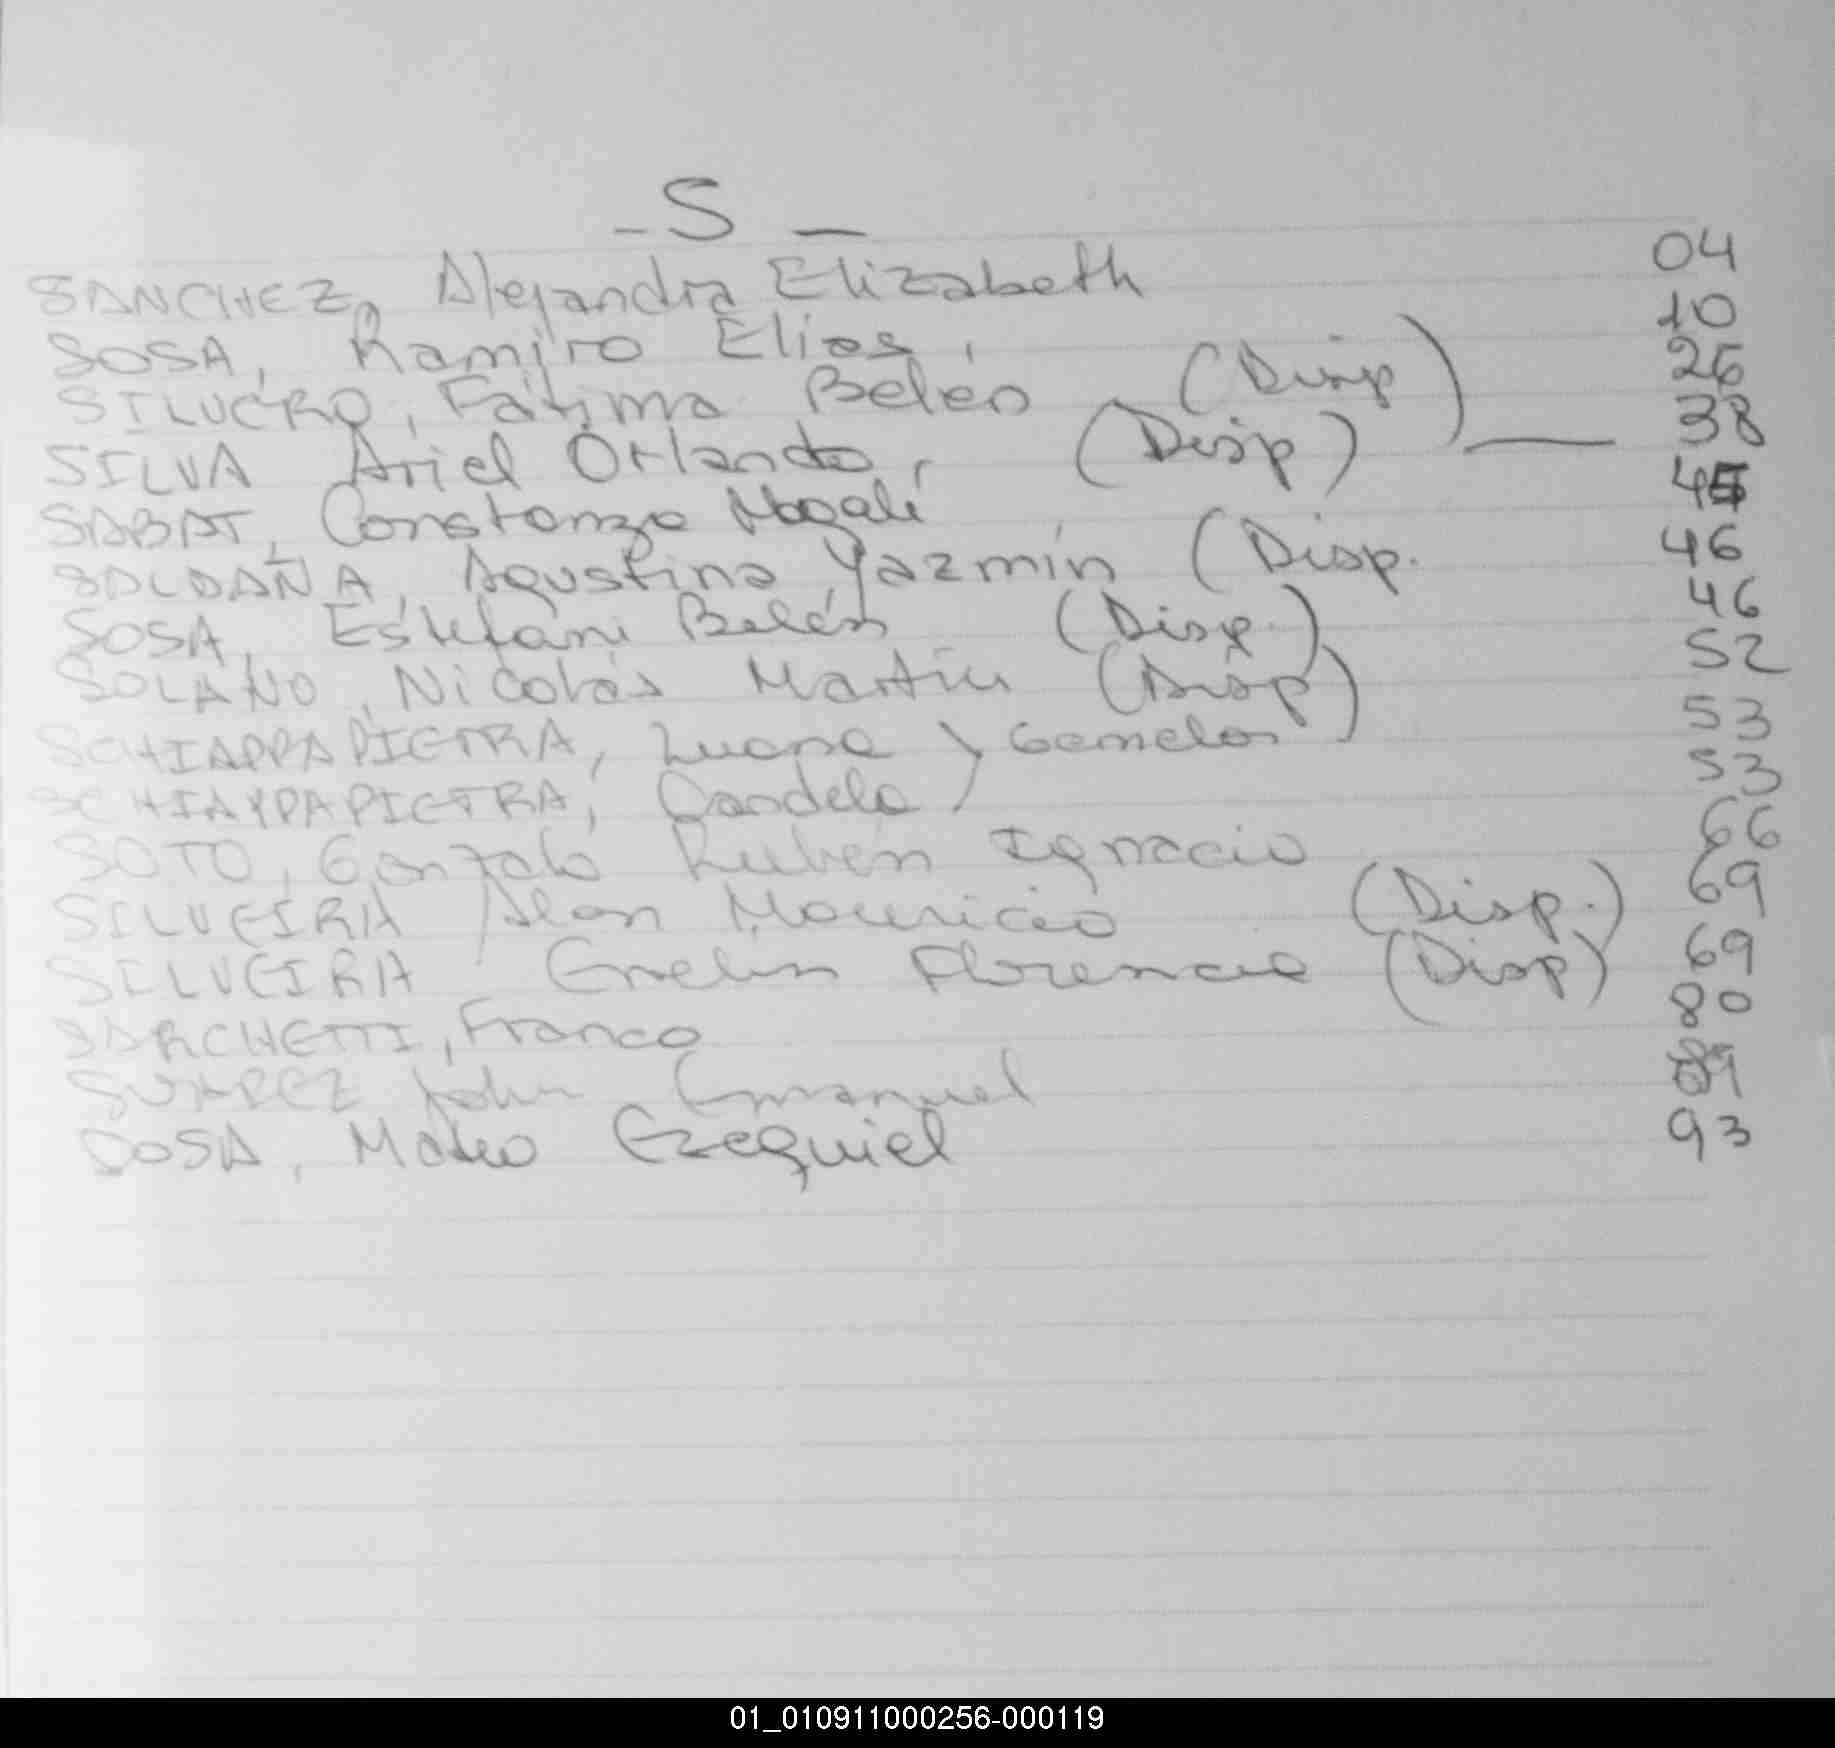 - S -
SANCHEZ, Alejandra Elizabeth 04
SOSA, Ramiro Elias, 10
SILUERO, Fátima Belén (Disp) 26
SILVA Ariel Orlando, (Disp) 38
SABAT, Constanza Magalí
SALDAÑA, Agustina Yazmín (Disp. 46
SOSA, Estefani Belén (Disp.) 46
SOLANO, Nicolás Martin (Disp) 52
SCHIAPPAPIETRA, Luana y Gemelos 53
SCHIAPPAPIETRA, Candela 53
SOTO, Gonzalo Rubén Ignacio 66
SILVEIRA Alan Mauricio (Disp.) 69
SILVEIRA Evelin Florencia (Disp) 69
SARCHETTI, Franco 80
SUAREZ John Emanuel 89
SOSA, Mateo Ezequiel 93
01_010911000256-000119